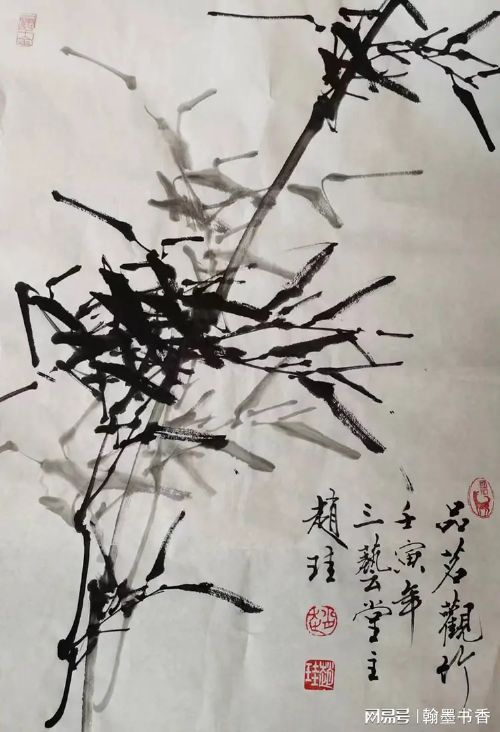 品茗觀竹
壬寅年
三藝堂主
趙珪
趙
珪
网易号 | 翰墨书香